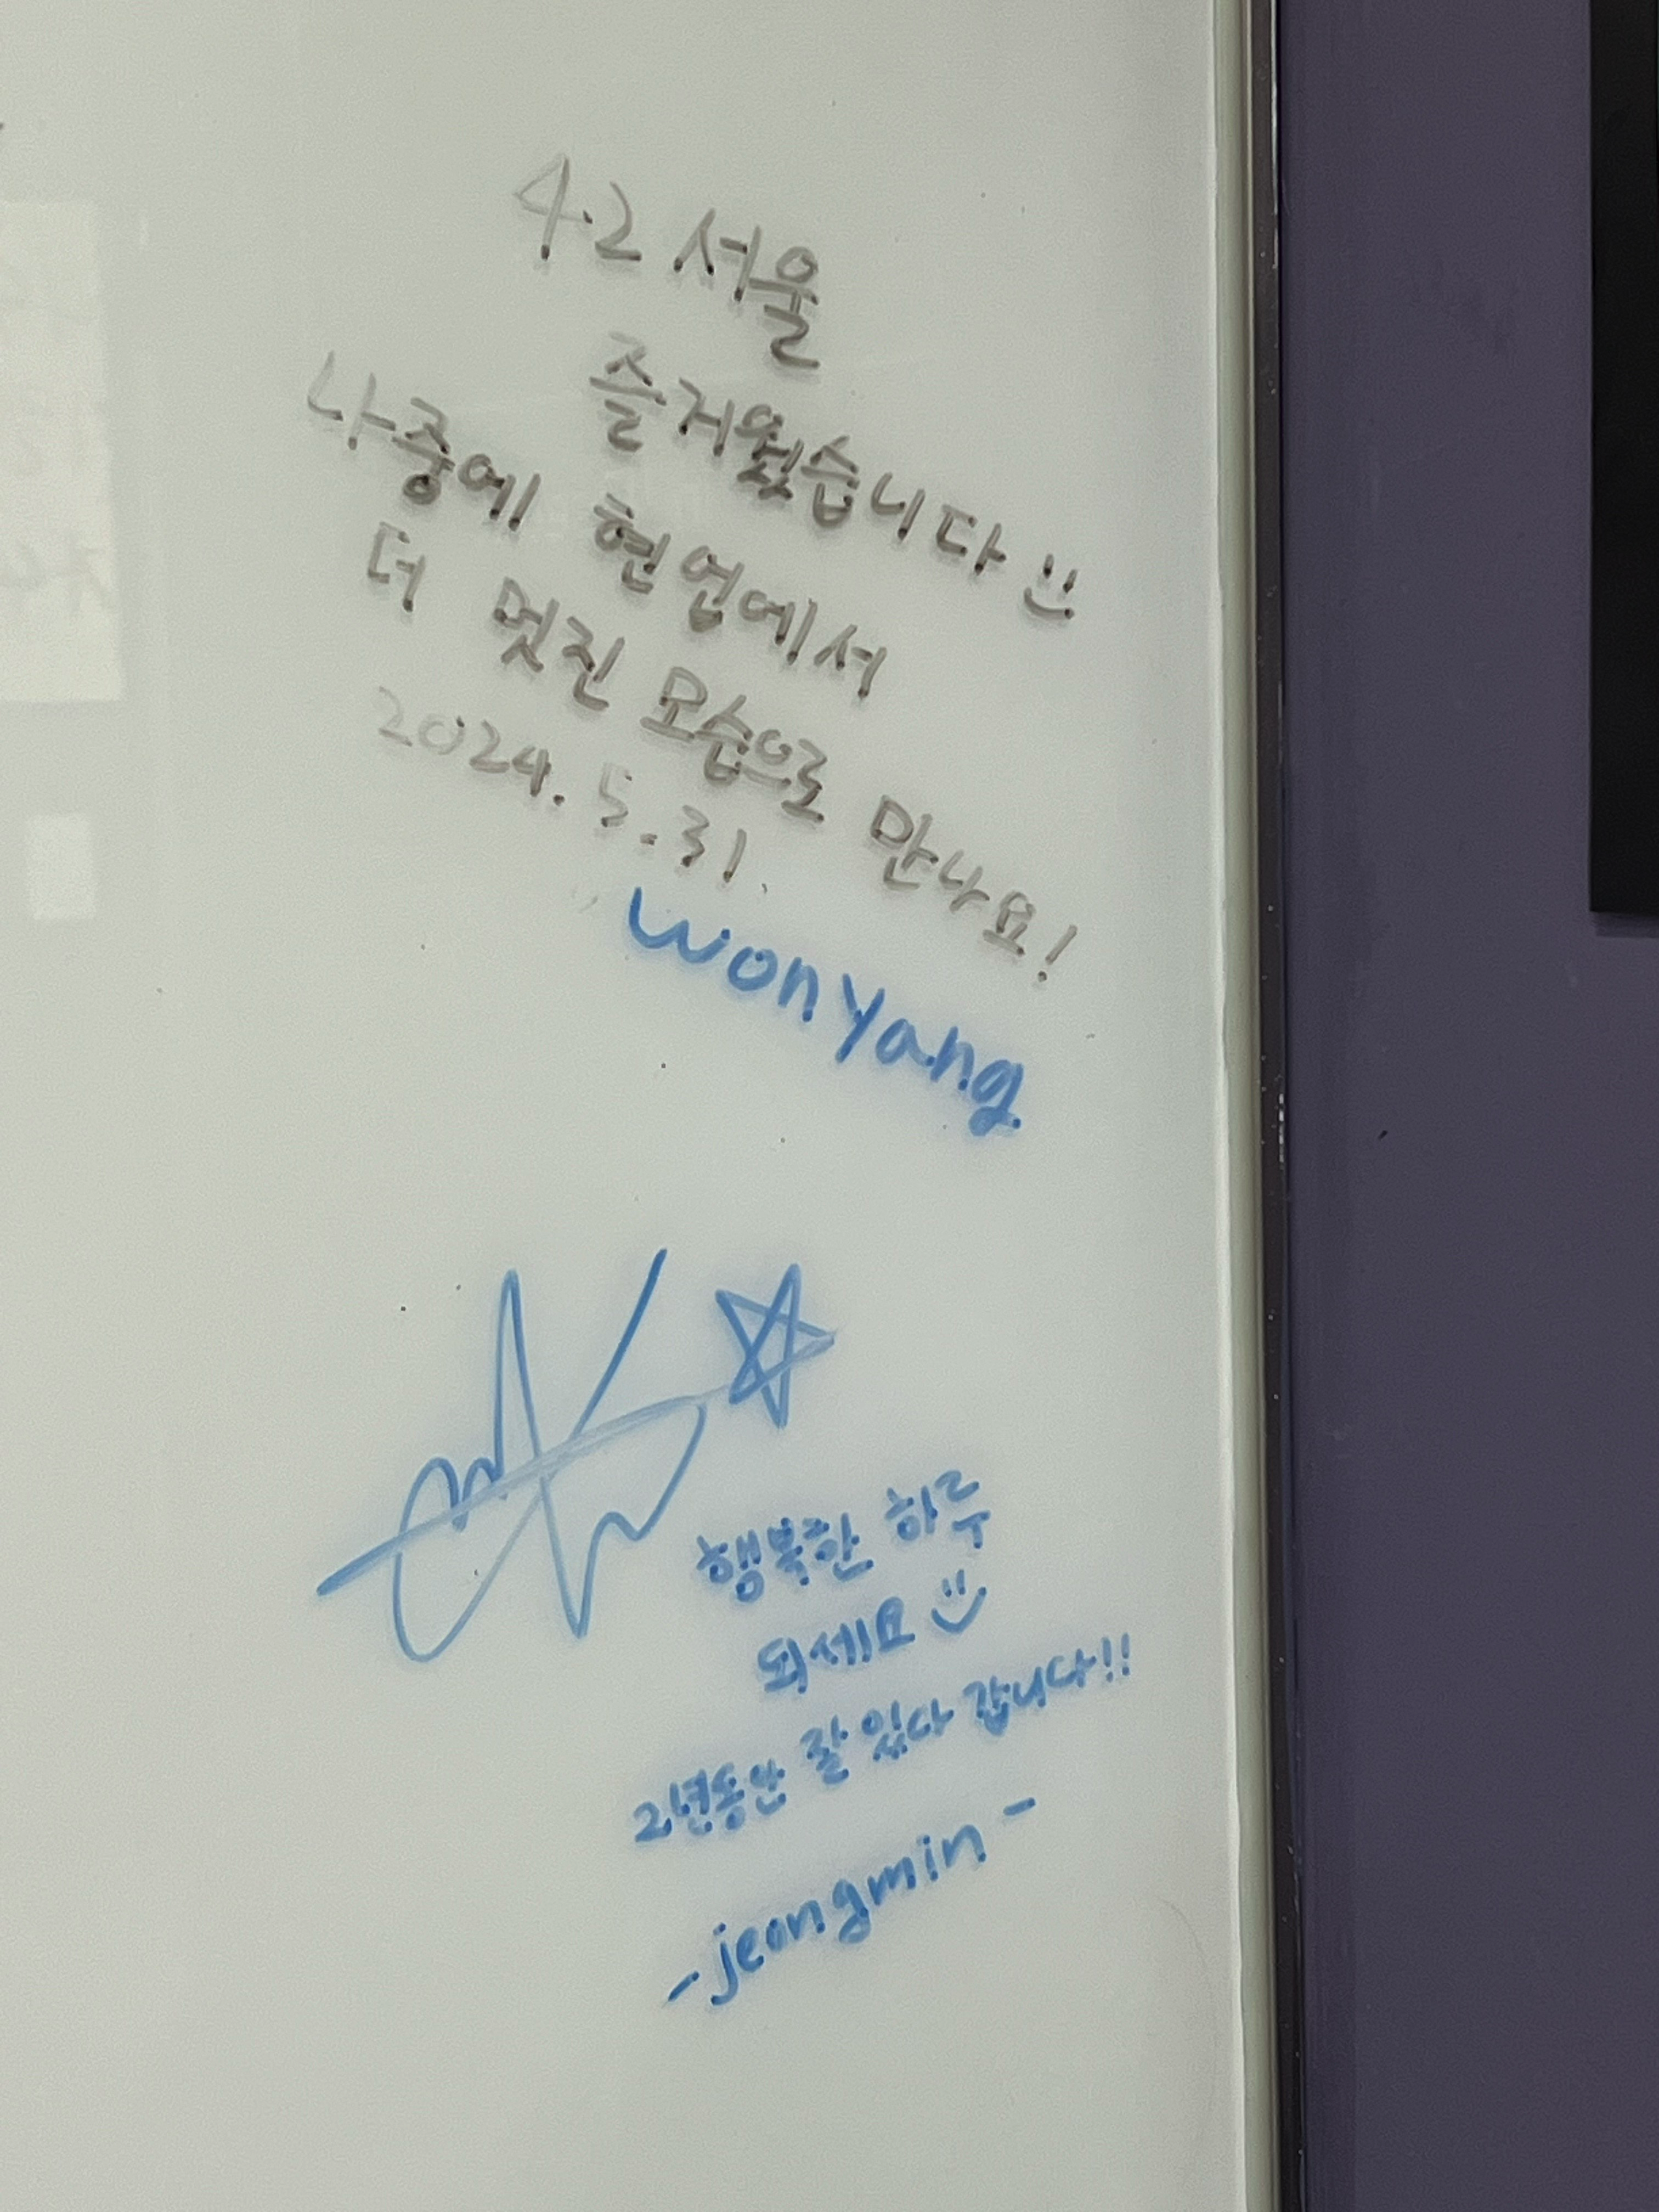 4.2 서울
즐거웠습니다 :)
나중에 현업에서
더 멋진 모습으로 만나요!
2024.5.31.
wonyang
행복한 하루
되세요 :)
2년동안 잘 있다 갑니다!!
-jeongmin-